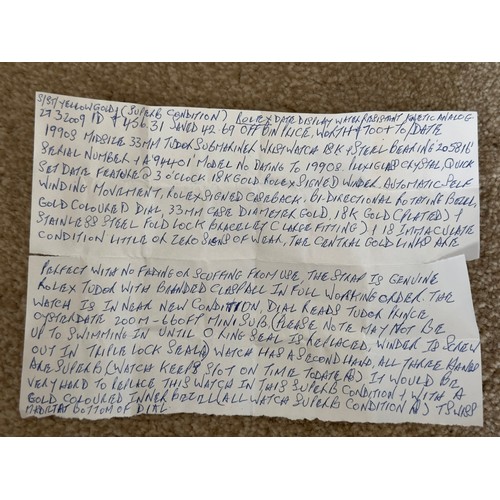 S/ST/YELLOW GOLD/(SUPERB CONDITION) ROLEX DATE DISPLAY WATER RESISTANT KINETIC ANALOG
27 3 2009 ID £456.31 SAVED 42.69 OFF BIN PRICE, WORTH £700+ TO/DATE
1990S MIDSIZE 33MM TUDOR SUBMARINER WRISTWATCH 18K & STEEL BEARING 205816
SERIAL NUMBER & A 94401 MODEL NO DATING TO 1990S. PLEXIGLASS CRYSTAL, QUICK
SET DATE FEATURE @ 3 O'CLOCK 18K GOLD ROLEX SIGNED WINDER. AUTOMATIC SELF
WINDING MOVEMENT, ROLEX SIGNED CASEBACK. BI-DIRECTIONAL ROTATING BEZEL,
GOLD COLOURED DIAL, 33MM CASE DIAMETER GOLD, 18K GOLD (PLATED) &
STAINLESS STEEL FOLD LOCK BRACELET (LARGE FITTING) & IS IMMACULATE
CONDITION LITTLE OR ZERO SIGNS OF WEAR, THE CENTRAL GOLD LINKS ARE
PERFECT WITH NO FADING OR SCUFFING FROM USE, THE STRAP IS GENUINE
ROLEX TUDOR WITH BRANDED CLASP ALL IN FULL WORKING ORDER. THE
WATCH IS IN NEAR NEW CONDITION, DIAL READS TUDOR PRINCE
OYSTERDATE 200M-660FT MINI SUB (PLEASE NOTE MAY NOT BE
UP TO SWIMMING IN UNTIL O RING SEAL IS REPLACED, WINDER IS SCREW
OUT IN TRIPLE LOCK SEAL) WATCH HAS A SECOND HAND, ALL THREE HANDS
ARE SUPERB (WATCH KEEPS SPOT ON TIME TODATE) IT WOULD BE
VERY HARD TO REPLACE THIS WATCH IN THIS SUPERB CONDITION & WITH A
GOLD COLOURED INNER BEZEL (ALL WATCH SUPERB CONDITION) T SWISS
MADE T AT BOTTOM OF DIAL.